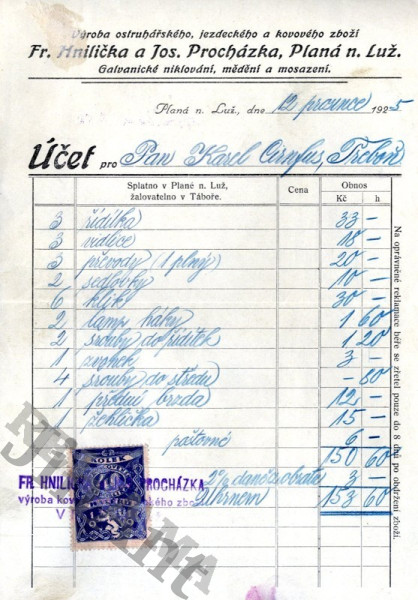 Výroba ostruhářského, jezdeckého a kovového zboží
Fr. Hnilička a Jos. Procházka, Planá n. Luž.
Galvanické niklování, mědění a mosazení.
Planá n. Luž., dne 12 prosince 1925
Účet pro Pan Karel Třeboň
Splatno v Plané n. Luž, žalovatelno v Táboře. Cena Obnos Kč h
3 řidítka 33 —
3 vidlice 18 —
3 převody (1 plný) 20 —
2 sedlovky 10 —
6 klik 30 —
2 lamp háky 1 60
2 srouby do řiditek 1 20
1 zvonek 3 —
4 srouby do středu — 80
1 přední brzda 12 —
1 15 —
poštovné 6 —
150 60
2% daně z obratu 3 —
Úhrnem 153 60
Na oprávněné reklamace béře se zřetel pouze do 8 dnů po obdržení zboží.
FR. HNILIČKA PROCHÁZKA
výroba kov zboží